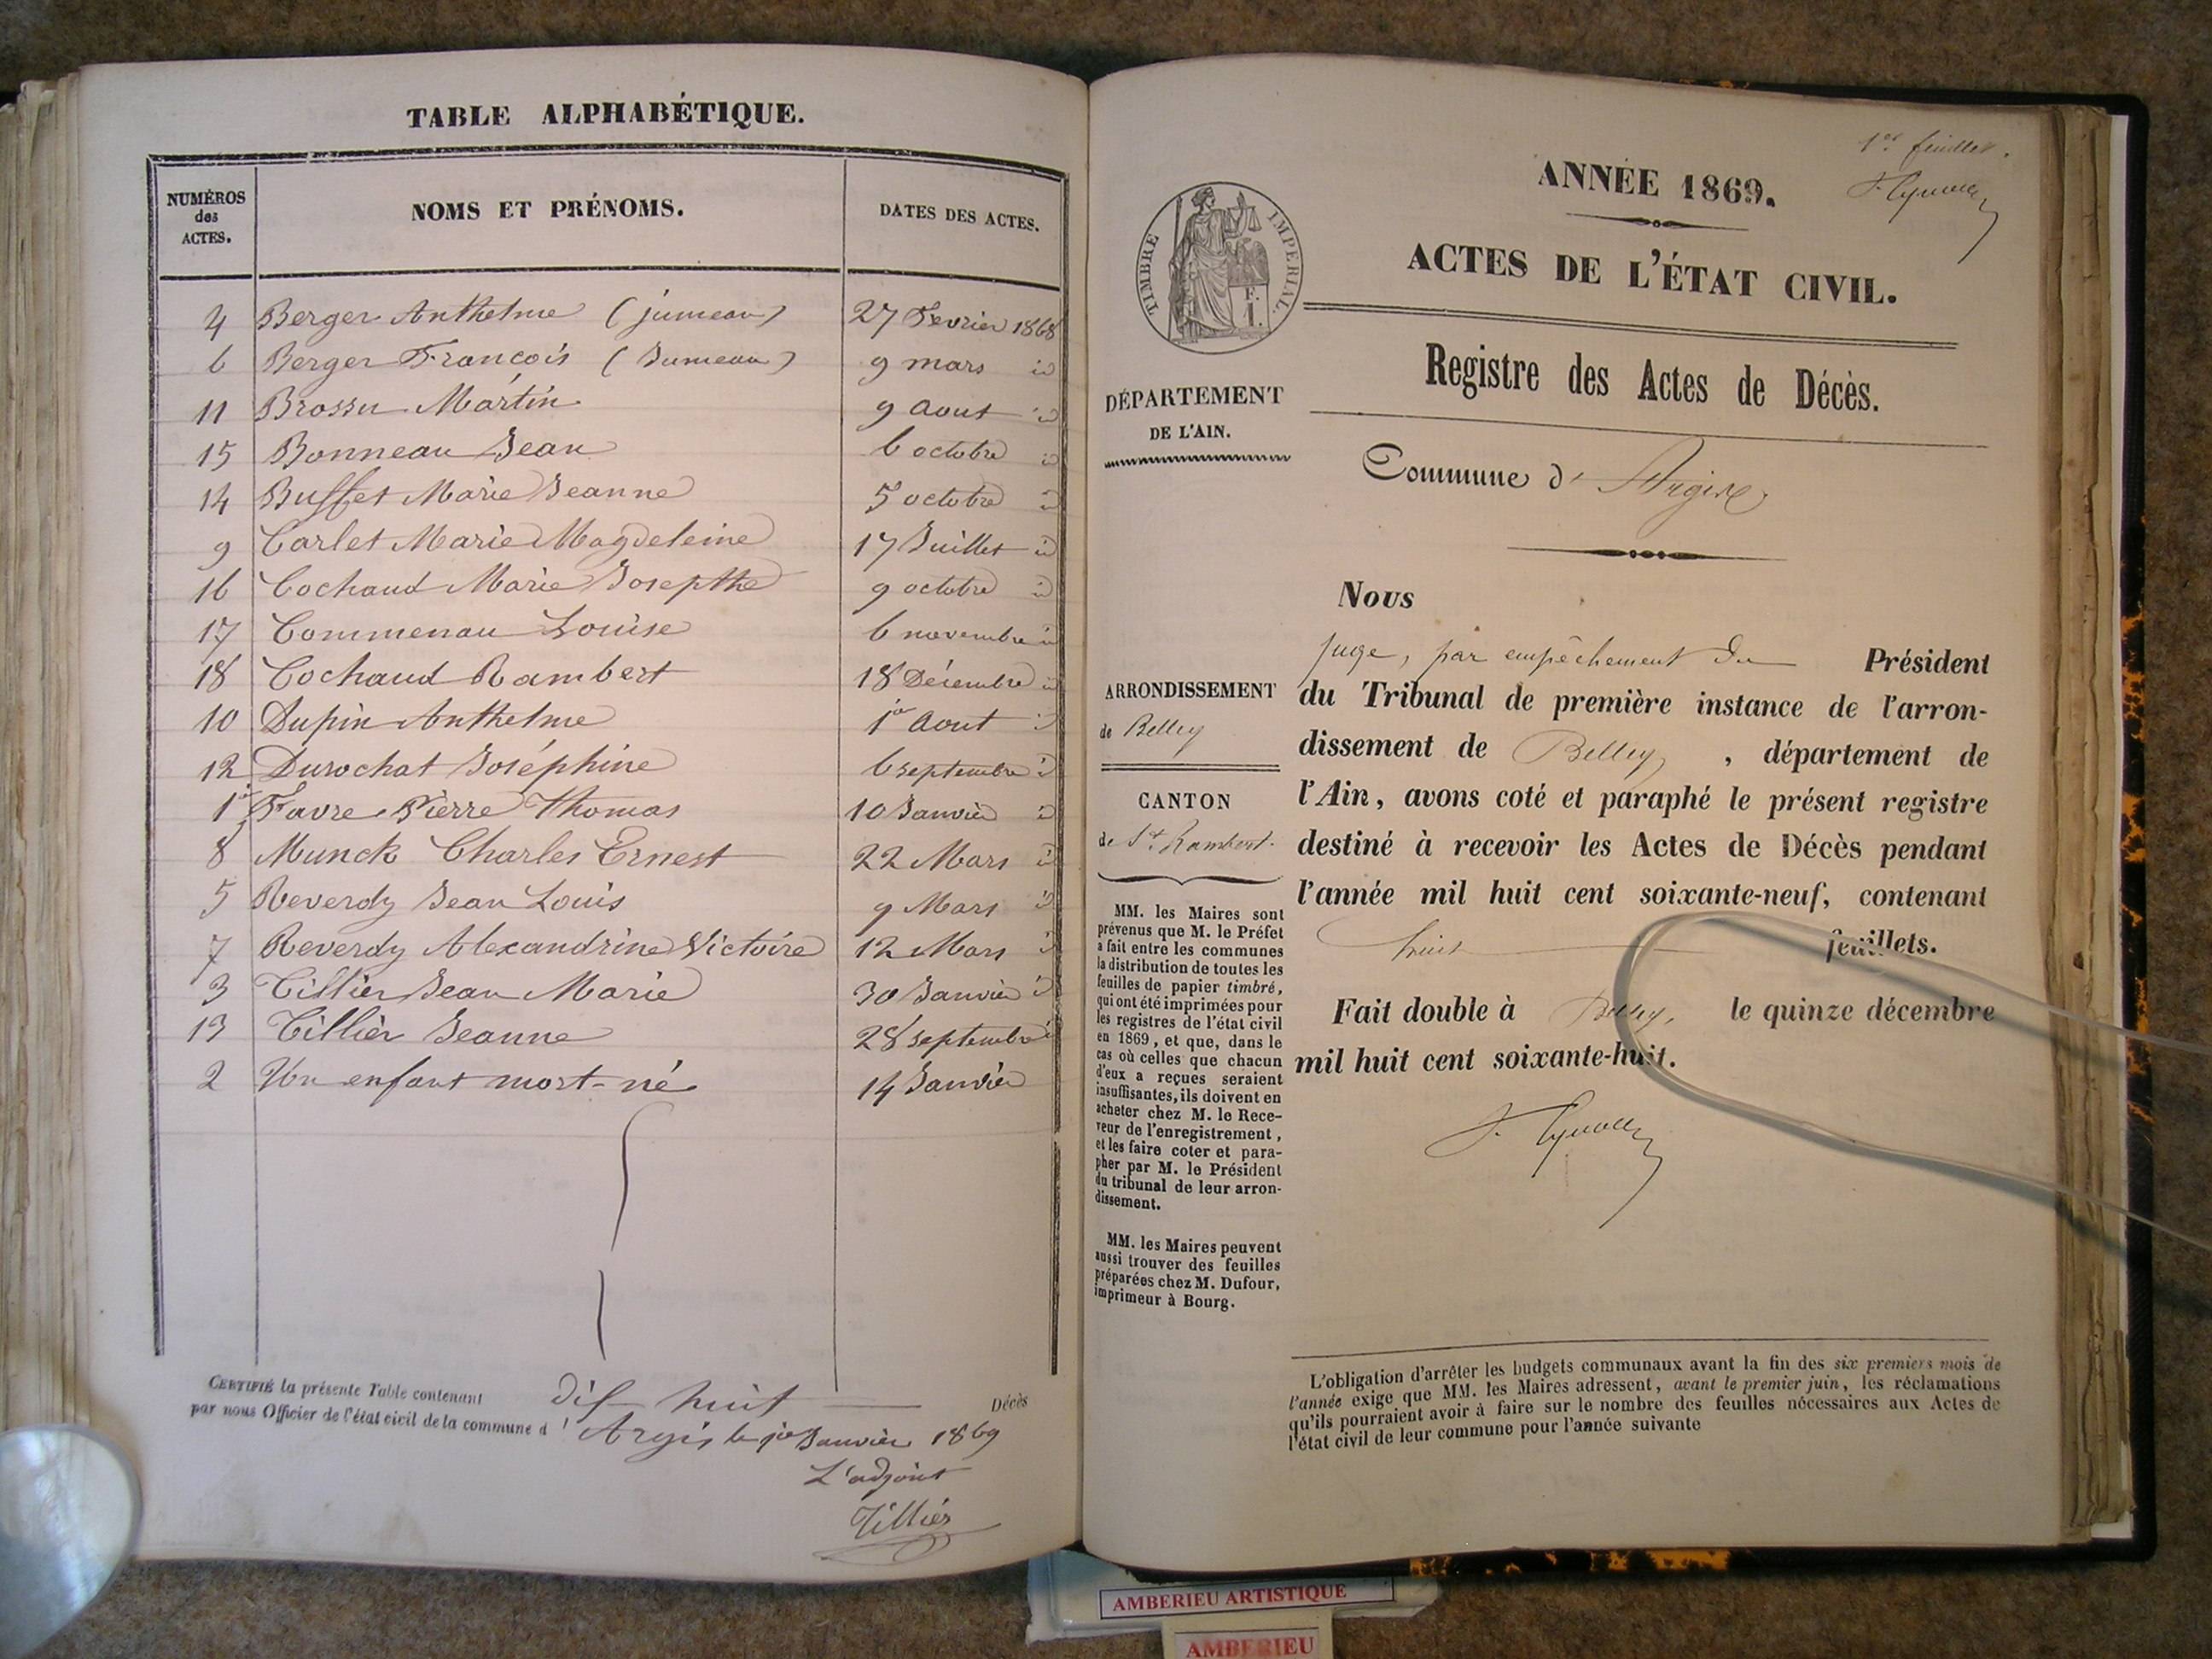 TABLE ALPHABÉTIQUE.
NUMÉROS des ACTES. NOMS ET PRÉNOMS. DATES DES ACTES.
4 Berger Anthelme (jumeau) 27 Fevrier 1868
6 Berger Francois (Jumeau) 9 mars id
11 Brossu Martin 9 Aout id
15 Bonneau Jean 6 octobre id
14 Buffet Marie Jeanne 5 octobre id
9 Carlet Marie Magdeleine 17 Juillet id
16 Cochaud Marie Josepthe 9 octobre id
17 Commenau Louise 6 novembre id
18 Cochaud Rambert 18 Décembre id
10 Dupin Anthelme 1er Aout id
12 Durochat Joséphine 6 septembre id
1er Favre Pierre Thomas 10 Janvier id
8 Munck Charles Ernest 22 Mars id
5 Reverdy Jean Louis 9 Mars id
7 Reverdy Alexandrine Victoire 12 Mars id
3 Tillier Jean Marie 30 Janvier id
13 Tillier Jeanne 28 septembre id
2 Un enfant mort-né 14 Janvier
CERTIFIÉ la présente Table contenant dif huit Décès
par nous Officier de l'état civil de la commune d' Argis le 1er Janvier 1869
L'adjoint
Tillier
1er feuillet.
ANNÉE 1869.
ACTES DE L'ÉTAT CIVIL.
TIMBRE IMPÉRIAL.
F.
1.
Registre des Actes de Décès.
DÉPARTEMENT
DE L'AIN.
Commune d' Argis
ARRONDISSEMENT
de Belley
CANTON
de St Rambert.
MM. les Maires sont
prévenus que M. le Préfet
a fait entre les communes
la distribution de toutes les
feuilles de papier timbré,
qui ont été imprimées pour
les registres de l'état civil
en 1869, et que, dans le
cas où celles que chacun
d'eux a reçues seraient
insuffisantes, ils doivent en
acheter chez M. le Rece-
veur de l'enregistrement,
et les faire coter et para-
pher par M. le Président
du tribunal de leur arron-
dissement.
MM. les Maires peuvent
aussi trouver des feuilles
préparées chez M. Dufour,
imprimeur à Bourg.
Nous
juge, par empêchement du Président
du Tribunal de première instance de l'arron-
dissement de Belley, département de
l'Ain, avons coté et paraphé le présent registre
destiné à recevoir les Actes de Décès pendant
l'année mil huit cent soixante-neuf, contenant
huit feuillets.
Fait double à Belley, le quinze décembre
mil huit cent soixante-huit.
L'obligation d'arrêter les budgets communaux avant la fin des six premiers mois de
l'année exige que MM. les Maires adressent, avant le premier juin, les réclamations
qu'ils pourraient avoir à faire sur le nombre des feuilles nécessaires aux Actes de
l'état civil de leur commune pour l'année suivante
AMBERIEU ARTISTIQUE
AMBERIEU